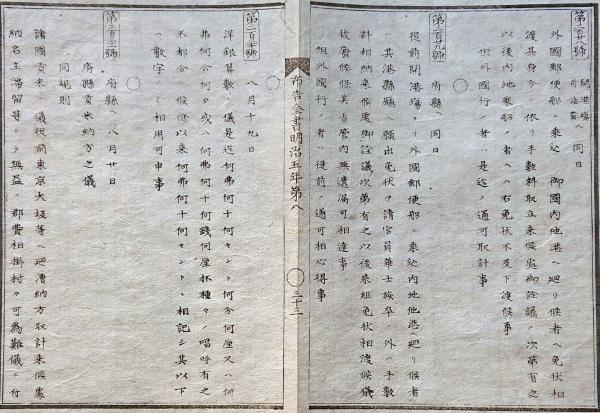 第二百廿八號
開港場
司法省 へ 同日
外國郵便船ニ乘込 御國内他港ヘ廻リ候者ヘ免狀相
渡其身分ニ依リ手數料取立来候處御詮議ノ次第有之
以後内地乘船ノ者ヘハ右免狀不及下渡候事
但外國行ノ者ハ是迄ノ通可取計事
第二百廿九號
府縣ヘ 同日
從前開港場ヨリ外國郵便船ニ乘込内地他港ヘ廻リ候者
ハ其港縣廳ヘ願出免狀ヲ請官員華士族卒ノ外ハ手數
料相納来候處御詮議次第有之以後乘組免狀相渡候儀
被廢候條其旨管内無遺漏可相達事
但外國行ノ者ハ從前ノ通可相心得事
布告全書明治五年第八
三十三
八月十九日
洋銀算數ノ儀是迄何弗何十何セント何分何厘又ハ何
弗何合何夕或ハ何弗何十何錢何厘抔種々ノ唱呼有之
不都合ノ候條以来何弗何十何セントト相記シ其以下
ハ數字ノミ相用可申事
府縣ヘ 八月廿日
府縣貢米納方之儀
同規則
諸國貢米ノ儀從前東京大坂等ヘ廻漕納方取計来候處
納名主滞留等ニテ無益ノ郡費相掛村々可為難儀ニ付